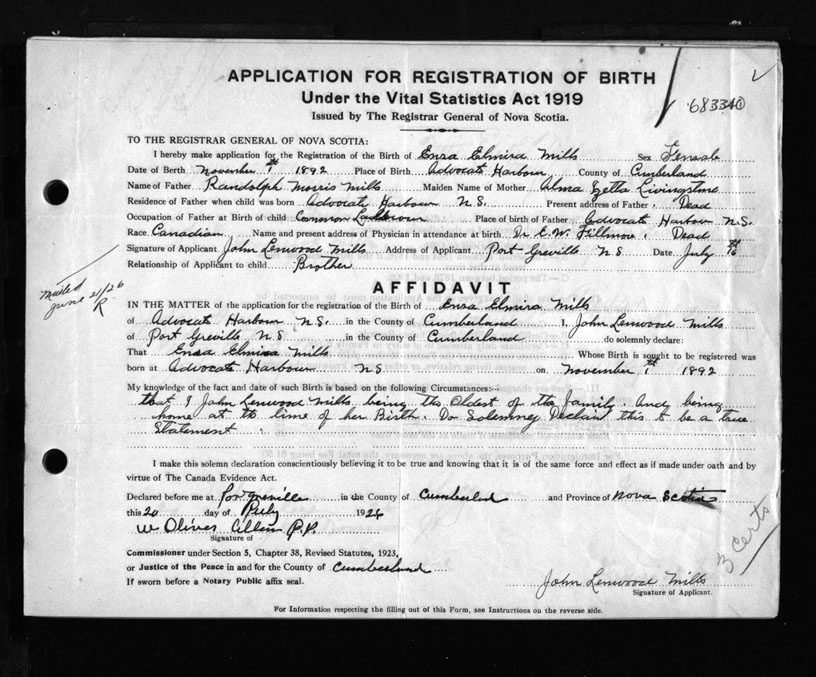 APPLICATION FOR REGISTRATION OF BIRTH
Under the Vital Statistics Act 1919
Issued by The Registrar General of Nova Scotia.
683340
TO THE REGISTRAR GENERAL OF NOVA SCOTIA:
I hereby make application for the Registration of the Birth of Enza Elmira Mills Sex Female
Date of Birth November 1st 1892 Place of Birth Advocate Harbour County of Cumberland
Name of Father Randolph Morris Mills Maiden Name of Mother Alma Zetta Livingstone
Residence of Father when child was born Advocate Harbour N.S. Present address of Father Dead
Occupation of Father at Birth of child Common Place of birth of Father Advocate Harbour N.S.
Race Canadian Name and present address of Physician in attendance at birth Dr E.W. Fillmore Dead
Signature of Applicant John Lenwood Mills Address of Applicant Port Greville N S Date July 16th
Relationship of Applicant to child Brother
Mailed
June 21/26
R
AFFIDAVIT
IN THE MATTER of the application for the registration of the Birth of Enza Elmira Mills
of Advocate Harbour N.S. in the County of Cumberland I, John Lenwood Mills
of Port Greville N S in the County of Cumberland do solemnly declare:
That Enza Elmira Mills Whose Birth is sought to be registered was
born at Advocate Harbour N S on November 1st 1892
My knowledge of the fact and date of such Birth is based on the following Circumstances:—
that I John Lenwood Mills being the Oldest of the Family. And being
home at the time of her Birth. Do Solemney Declare this to be a true
Statement
I make this solemn declaration conscientiously believing it to be true and knowing that it is of the same force and effect as if made under oath and by
virtue of The Canada Evidence Act.
Declared before me at Port Greville in the County of Cumberland and Province of Nova Scotia
this 20 day of July 1926
W Oliver
Signature of
Commissioner under Section 5, Chapter 38, Revised Statutes, 1923,
or Justice of the Peace in and for the County of Cumberland
If sworn before a Notary Public affix seal.
John Lenwood Mills
Signature of Applicant.
3 Certs
For Information respecting the filling out of this Form, see Instructions on the reverse side.